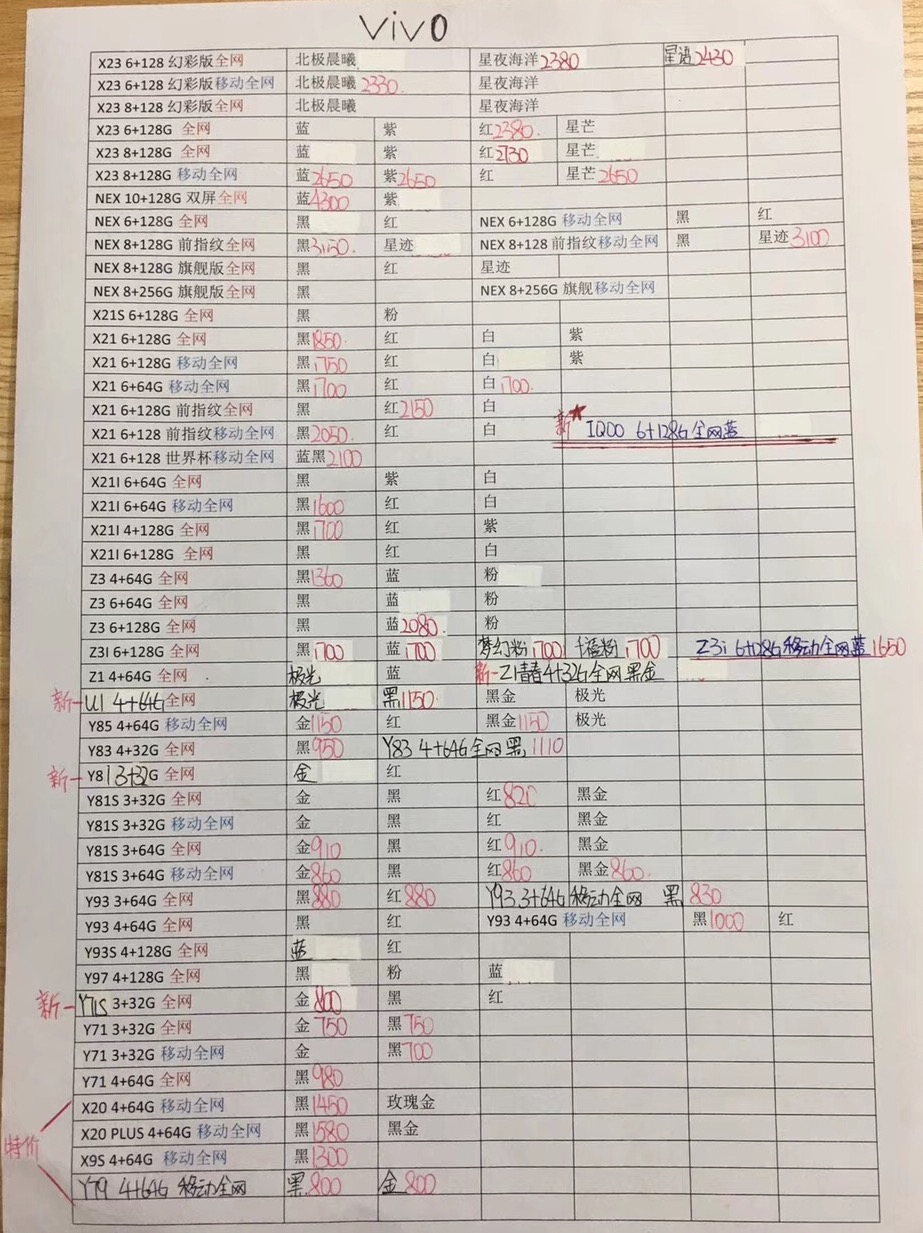 vivo
X23 6+128 幻彩版全网 北极晨曦 星夜海洋2380 星语2430
X23 6+128 幻彩版移动全网 北极晨曦 2330. 星夜海洋
X23 8+128 幻彩版全网 北极晨曦 星夜海洋
X23 6+128G 全网 蓝 紫 红2380. 星芒
X23 8+128G 全网 蓝 紫 红2730 星芒
X23 8+128G 移动全网 蓝2650 紫2650 红 星芒2650
NEX 10+128G 双屏全网 蓝4300 紫
NEX 6+128G 全网 黑 红 NEX 6+128G 移动全网 黑 红
NEX 8+128G 前指纹全网 黑3150. 星迹 NEX 8+128 前指纹移动全网 黑 星迹3100
NEX 8+128G 旗舰版全网 黑 红 星迹
NEX 8+256G 旗舰版全网 黑 NEX 8+256G 旗舰移动全网
X21S 6+128G 全网 黑 粉
X21 6+128G 全网 黑1850. 红 白 紫
X21 6+128G 移动全网 黑1750 红 白 紫
X21 6+64G 移动全网 黑1700 红 白1700.
X21 6+128G 前指纹全网 黑 红2150 白
新★ IQOO 6+128G全网蓝
X21 6+128 前指纹移动全网 黑2050. 红 白
X21 6+128 世界杯移动全网 蓝黑2100
X21I 6+64G 全网 黑 紫 白
X21I 6+64G 移动全网 黑1600 红 白
X21I 4+128G 全网 黑1700 红 紫
X21I 6+128G 全网 黑 红 白
Z3 4+64G 全网 黑1360 蓝 粉
Z3 6+64G 全网 黑 蓝 粉
Z3 6+128G 全网 黑 蓝2080. 粉
Z3I 6+128G 全网 黑1700 蓝1700 梦幻粉1700 千禧粉1700 Z3i 6+128G移动全网蓝1650
Z1 4+64G 全网 极光 蓝 新-Z1青春4+32G全网黑金
新-U1 4+64G全网 极光 黑1150 黑金 极光
Y85 4+64G 移动全网 金1150 红 黑金1150 极光
Y83 4+32G 全网 黑950 Y83 4+64G全网黑1110
新-Y81 3+32G 全网 金 红
Y81S 3+32G 全网 金 黑 红820 黑金
Y81S 3+32G 移动全网 金 黑 红 黑金
Y81S 3+64G 全网 金910 黑 红910. 黑金
Y81S 3+64G 移动全网 金860 黑 红860 黑金860.
Y93 3+64G 全网 黑880 红880 Y93 3+64G移动全网 黑830
Y93 4+64G 全网 黑 红 Y93 4+64G 移动全网 黑1000 红
Y93S 4+128G 全网 蓝 红
Y97 4+128G 全网 黑 粉 蓝
新-Y71S 3+32G 全网 金800 黑 红
Y71 3+32G 全网 金750 黑750
Y71 3+32G 移动全网 金 黑700
Y71 4+64G 全网 黑980
X20 4+64G 移动全网 黑1450 玫瑰金
特价
X20 PLUS 4+64G 移动全网 黑1580 黑金
X9S 4+64G 移动全网 黑1300
Y79 4+64G 移动全网 黑800 金800